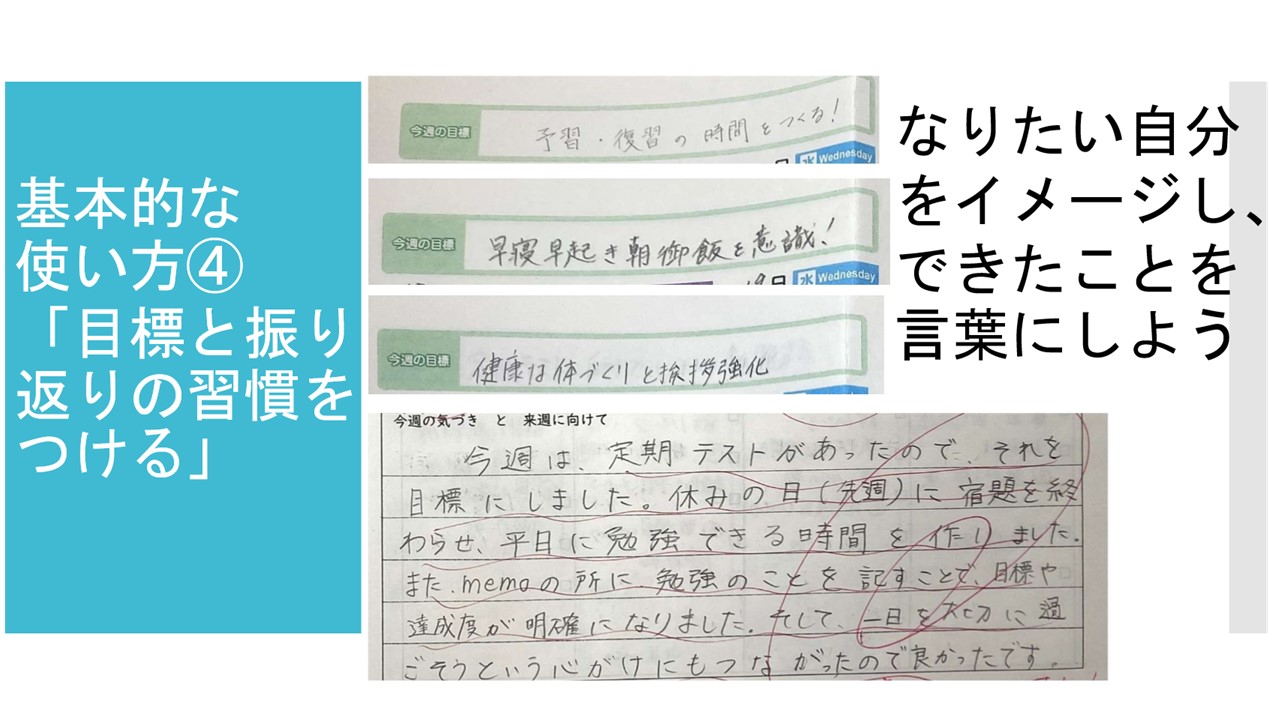 基本的な
使い方④
「目標と振り
返りの習慣を
つける」
今週の目標
予習・復習の時間をつくる!
水 Wednesday
今週の目標
早寝早起き朝御飯を意識!
9日 水 Wednesday
今週の目標
健康な体づくりと挨拶強化
なりたい自分
をイメージし、
できたことを
言葉にしよう
今週の気づき と 来週に向けて
今週は、定期テストがあったので、それを
目標にしました。休みの日(先週)に宿題を終
わらせ、平日に勉強できる時間を作りました。
また、memoの所に勉強のことを記すことで、目標や
達成度が明確になりました。そして、一日を大切に過
ごそうという心がけにもつながったので良かったです。